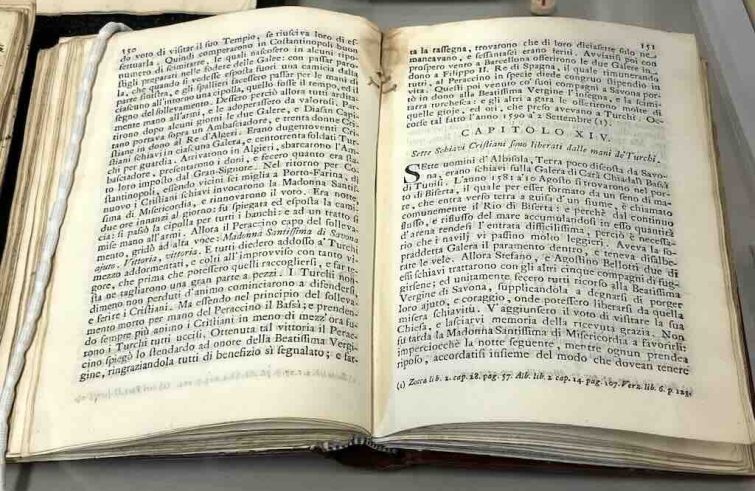 150
do voto di visitar il suo Tempio, se riusciva loro di ef-
fettuarla. Quindi comperarono in Costantinopoli buon
numero di scimitarre, le quali nascosero in alcuni ripo-
stigli preparati nelle fodere delle Galee: con passar paro-
la, che quando si vedesse esposta fuori una camicia dalla
parte sinistra, e gli spallieri facessero passar per le mani di
ciascuno all'intorno una cipolla, quello fusse il tempo, ed il
segno del sollevamento. Desser perciò allora tutti ardita-
mente mano all'armi, e le adoperassero da valorosi. Par-
tirono dopo alcuni giorni le due Galere, e Diasan Capi-
tano portava sopra un Ambasciadore, e trenta donne Cri-
stiane in dono al Re d'Algieri. Erano dugentoventi Cri-
stiani schiavi in ciascuna Galera, e centotrenta soldati Tur-
chi per guardia. Arrivarono in Algieri, sbarcarono l'Am-
basciadore, presentarono i doni, e fecero quanto era sta-
to loro imposto dal Gran-Signore. Nel ritorno per Co-
stantinopoli, essendo vicini sei miglia a Porto-Farina, di
nuovo i Cristiani schiavi invocarono la Madonna Santis-
sima di Misericordia, e rinnovarono il voto. Era notte,
due ore innanzi al giorno: fu spiegata ed esposta la cami-
cia: si passò la cipolla per tutti i banchi: e ad un tratto si
mise mano all'armi. Allora il Peraccino capo del solleva-
mento, gridò ad alta voce: Madonna Santissima di Savona
ajuto. Vittoria, vittoria. E tutti diedero addosso a' Turchi
mezza addormentati, e colti all'improvviso con tanto vi-
gore, che prima che potessero quelli raccogliersi, e far te-
sta ne tagliarono una gran parte a pezzi. I Turchi non-
dimeno non perduti d'animo cominciarono a difendersi,
e ferire i Cristiani. Ma essendo nel principio del solleva-
mento morto per mano del Peraccino il Bassà; e prenden-
do sempre più animo i Cristiani in meno di mezz'ora fu-
rono i Turchi tutti uccisi. Ottenuta tal vittoria il Perac-
cino spiegò lo stendardo ad onore della Beatissima Vergi-
gine, ringraziandola tutti di benefizio sì segnalato; e fat-
151
ta la rassegna, trovarono che di loro diciasette soli ne
mancavano, e sessantasei erano feriti. Avviatisi poi con
prospero vento a Barcellona offerirono le due Galere in
dono a Filippo II. Re di Spagna, il quale rimunerando
tutti, al Peraccino in specie diede congruo stipendio in
vita. Quelli poi venuti co' suoi compagni a Savona por-
tò in dono alla Beatissima Vergine l'insegna, e la scimi-
tarra turchesca: e gli altri a gara le offerirono molte di
quelle gioje, ed ori, che preso avevano a' Turchi. Oc-
corse tal fatto l'anno 1590 a' 2 Settembre (1).
CAPITOLO XIV.
Sette Schiavi Cristiani sono liberati dalle mani de' Turchi.
SEtte uomini d'Albisola, Terra poco discosta da Savo-
na, erano schiavi sulla Galera di Carà Chiadalì Bassà
di Tunisi. L'anno 1581 a' 10 Agosto si trovarono nel por-
to di Biserta, il quale per esser formato da un seno di ma-
re, che entra verso terra a guisa d'un fiume, è chiamato
comunemente il Rio di Biserta: e perchè dal continuo
flusso, e riflusso del mare accumulandosi in esso quantità
d'arena rendesi l'entrata difficilissima, perciò è necessa-
rio che i navilj vi passino molto leggieri. Aveva la so-
praddetta Galera il paramento dentro, e teneva disalbe-
rate le vele. Allora Stefano, e Agostino Bellotti due di
essi schiavi trattarono con gli altri cinque compagni di fug-
girsene; ed unitamente fecero tutti ricorso alla Beatissima
Vergine di Savona, supplicandola a degnarsi di porger
loro ajuto, e coraggio, onde potessero liberarsi da quella
misera schiavitù. V'aggiunsero il voto di visitare la sua
Chiesa, e lasciarvi memoria della ricevuta grazia. Non
fu tarda la Madonna Santissima di Misericordia a favorirli;
imperciocchè la notte seguente, mentre ognun prendea
riposo, accordatisi insieme del modo che dovean tenere
(1) Zocca lib. 2. cap. 28. pag. 57. Alb. lib. 2 cap. 14. pag. 167. Verz. lib. 6. p. 128.